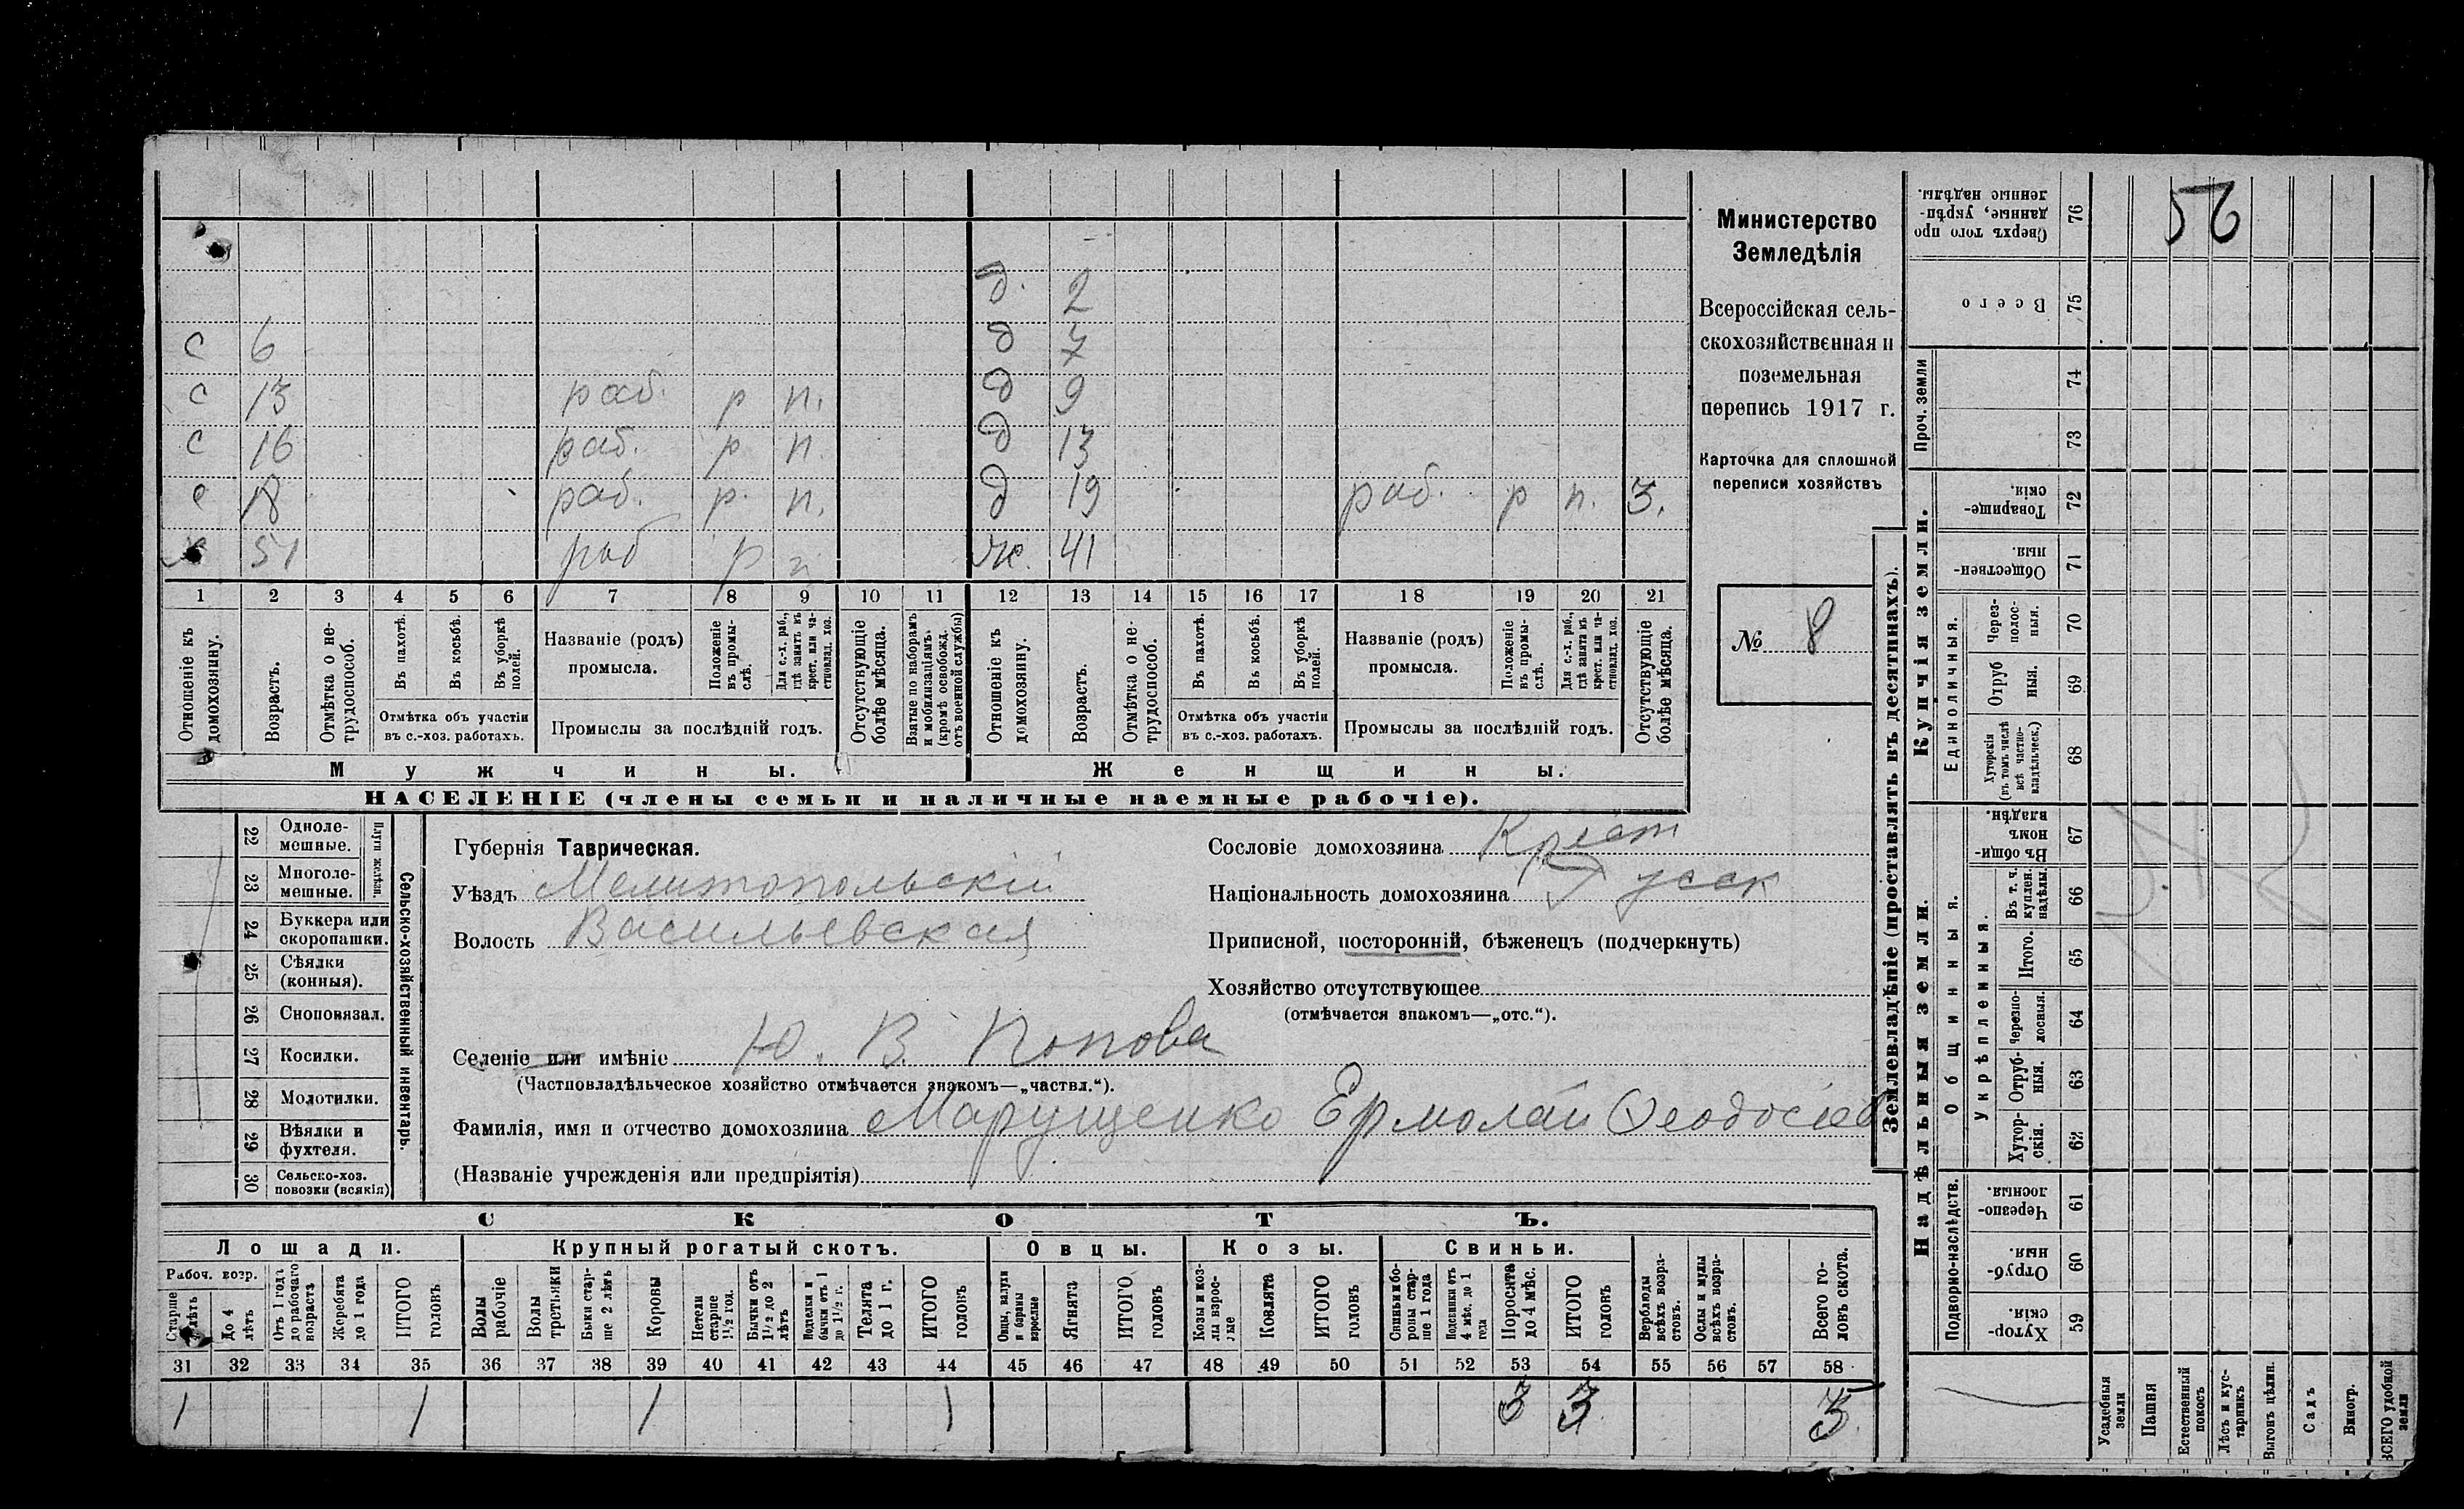 д. 2
с 6 д 7
с 13 раб. р п. д 9
с 16 раб. р п. д 13
с 18 раб. р. п. д 19 раб. р п. 3.
х 51 раб р п ж. 41
1 2 3 4 5 6 7 8 9 10 11 12 13 14 15 16 17 18 19 20 21
Отношеніе къ домохозяину.
Возрастъ.
Отмѣтка о нетрудоспособ.
Въ пахотѣ.
Въ косьбѣ.
Въ уборкѣ полей.
Отмѣтка объ участіи
въ с.-хоз. работахъ.
Названіе (родъ)
промысла.
Положеніе въ промыслѣ.
Для с.-х. раб., гдѣ занятъ въ крест. или частновлад. хоз.
Промыслы за послѣдній годъ.
Отсутствующіе болѣе мѣсяца.
Взятые по наборамъ и мобилизаціямъ (кромѣ освобожд. отъ военной службы)
Отношеніе къ домохозяину.
Возрастъ.
Отмѣтка о нетрудоспособ.
Въ пахотѣ.
Въ косьбѣ.
Въ уборкѣ полей.
Отмѣтка объ участіи
въ с.-хоз. работахъ.
Названіе (родъ)
промысла.
Положеніе въ промыслѣ.
Для с.-х. раб., гдѣ занятъ въ крест. или частновлад. хоз.
Промыслы за послѣдній годъ.
Отсутствующіе болѣе мѣсяца.
Мужчины. Женщины.
НАСЕЛЕНІЕ (члены семьи и наличные наемные рабочіе).
Министерство
Земледѣлія
Всероссійская сель-
скохозяйственная и
поземельная
перепись 1917 г.
Карточка для сплошной
переписи хозяйствъ
№ 8
22 Однолемешные.
23 Многолемешные.
Плуги желѣзн.
24 Буккера или скоропашки.
25 Сѣялки (конныя).
26 Сноповязал.
27 Косилки.
28 Молотилки.
29 Вѣялки и фухтеля.
30 Сельско-хоз. повозки (всякія)
Сельско-хозяйственный инвентарь.
Губернія Таврическая.
Уѣздъ Мелитопольскій
Волость Васильевская
Сословіе домохозяина Крест
Національность домохозяина Русск
Приписной, посторонній, бѣженецъ (подчеркнуть)
Хозяйство отсутствующее
(отмѣчается знакомъ—„отс.“).
Селеніе или имѣніе Ю. В. Попова
(Частновладѣльческое хозяйство отмѣчается знакомъ—„частвл.“).
Фамилія, имя и отчество домохозяина Марущенко Ермолай Ѳеодосіев
(Названіе учрежденія или предпріятія)
СКОТЪ.
Лошади. Крупный рогатый скотъ. Овцы. Козы. Свиньи.
Рабоч. возр.
Старше лѣтъ
До 4 лѣтъ
Отъ 1 года до рабочаго возраста
Жеребята до 1 года
ИТОГО головъ
Волы рабочіе
Волы третьяки
Быки старше 2 лѣтъ
Коровы
Нетели старше 1½ год.
Бычки отъ 1½ до 2 лѣтъ
Подтелки и бычки отъ 1 до 1½ г.
Телята до 1 г.
ИТОГО головъ
Овцы, валухи и бараны взрослые
Ягнята
ИТОГО головъ
Козы и козлы взрослые
Козлята
ИТОГО головъ
Свиньи и боровы старше 1 года
Подсвинки отъ 4 мѣс. до 1 года
Поросята до 4 мѣс.
ИТОГО головъ
Верблюды всѣхъ возрастовъ.
Ослы и мулы всѣхъ возрастовъ.
Всего головъ скота.
31 32 33 34 35 36 37 38 39 40 41 42 43 44 45 46 47 48 49 50 51 52 53 54 55 56 57 58
1 1 1 1 3 3 5
Землевладѣніе (проставлять въ десятинахъ).
Купчія земли.
Надѣльныя земли.
56
76 Сверхъ того проданные, укрѣпленные надѣлы.
75 Всего
Проч. земли
74
73
72 Товарищескія.
71 Общественныя.
Единоличныя.
70 Черезполосныя.
69 Отрубныя.
68 Хуторскія (въ томъ числѣ всѣ частновладѣльческ.)
Общинныя.
67 Въ общинномъ владѣн.
Укрѣпленныя.
66 Въ т. ч. куплен. надѣлы.
65 Итого.
64 Черезполосныя.
63 Отрубныя.
62 Хуторскія.
Подворно-наслѣдств.
61 Черезполосныя.
60 Отрубныя.
59 Хуторскія.
Усадебныя земли
Пашня
Естественный покосъ
Лѣсъ и кустарникъ
Выгонъ цѣлин.
Садъ
Виногр.
ВСЕГО удобной земли